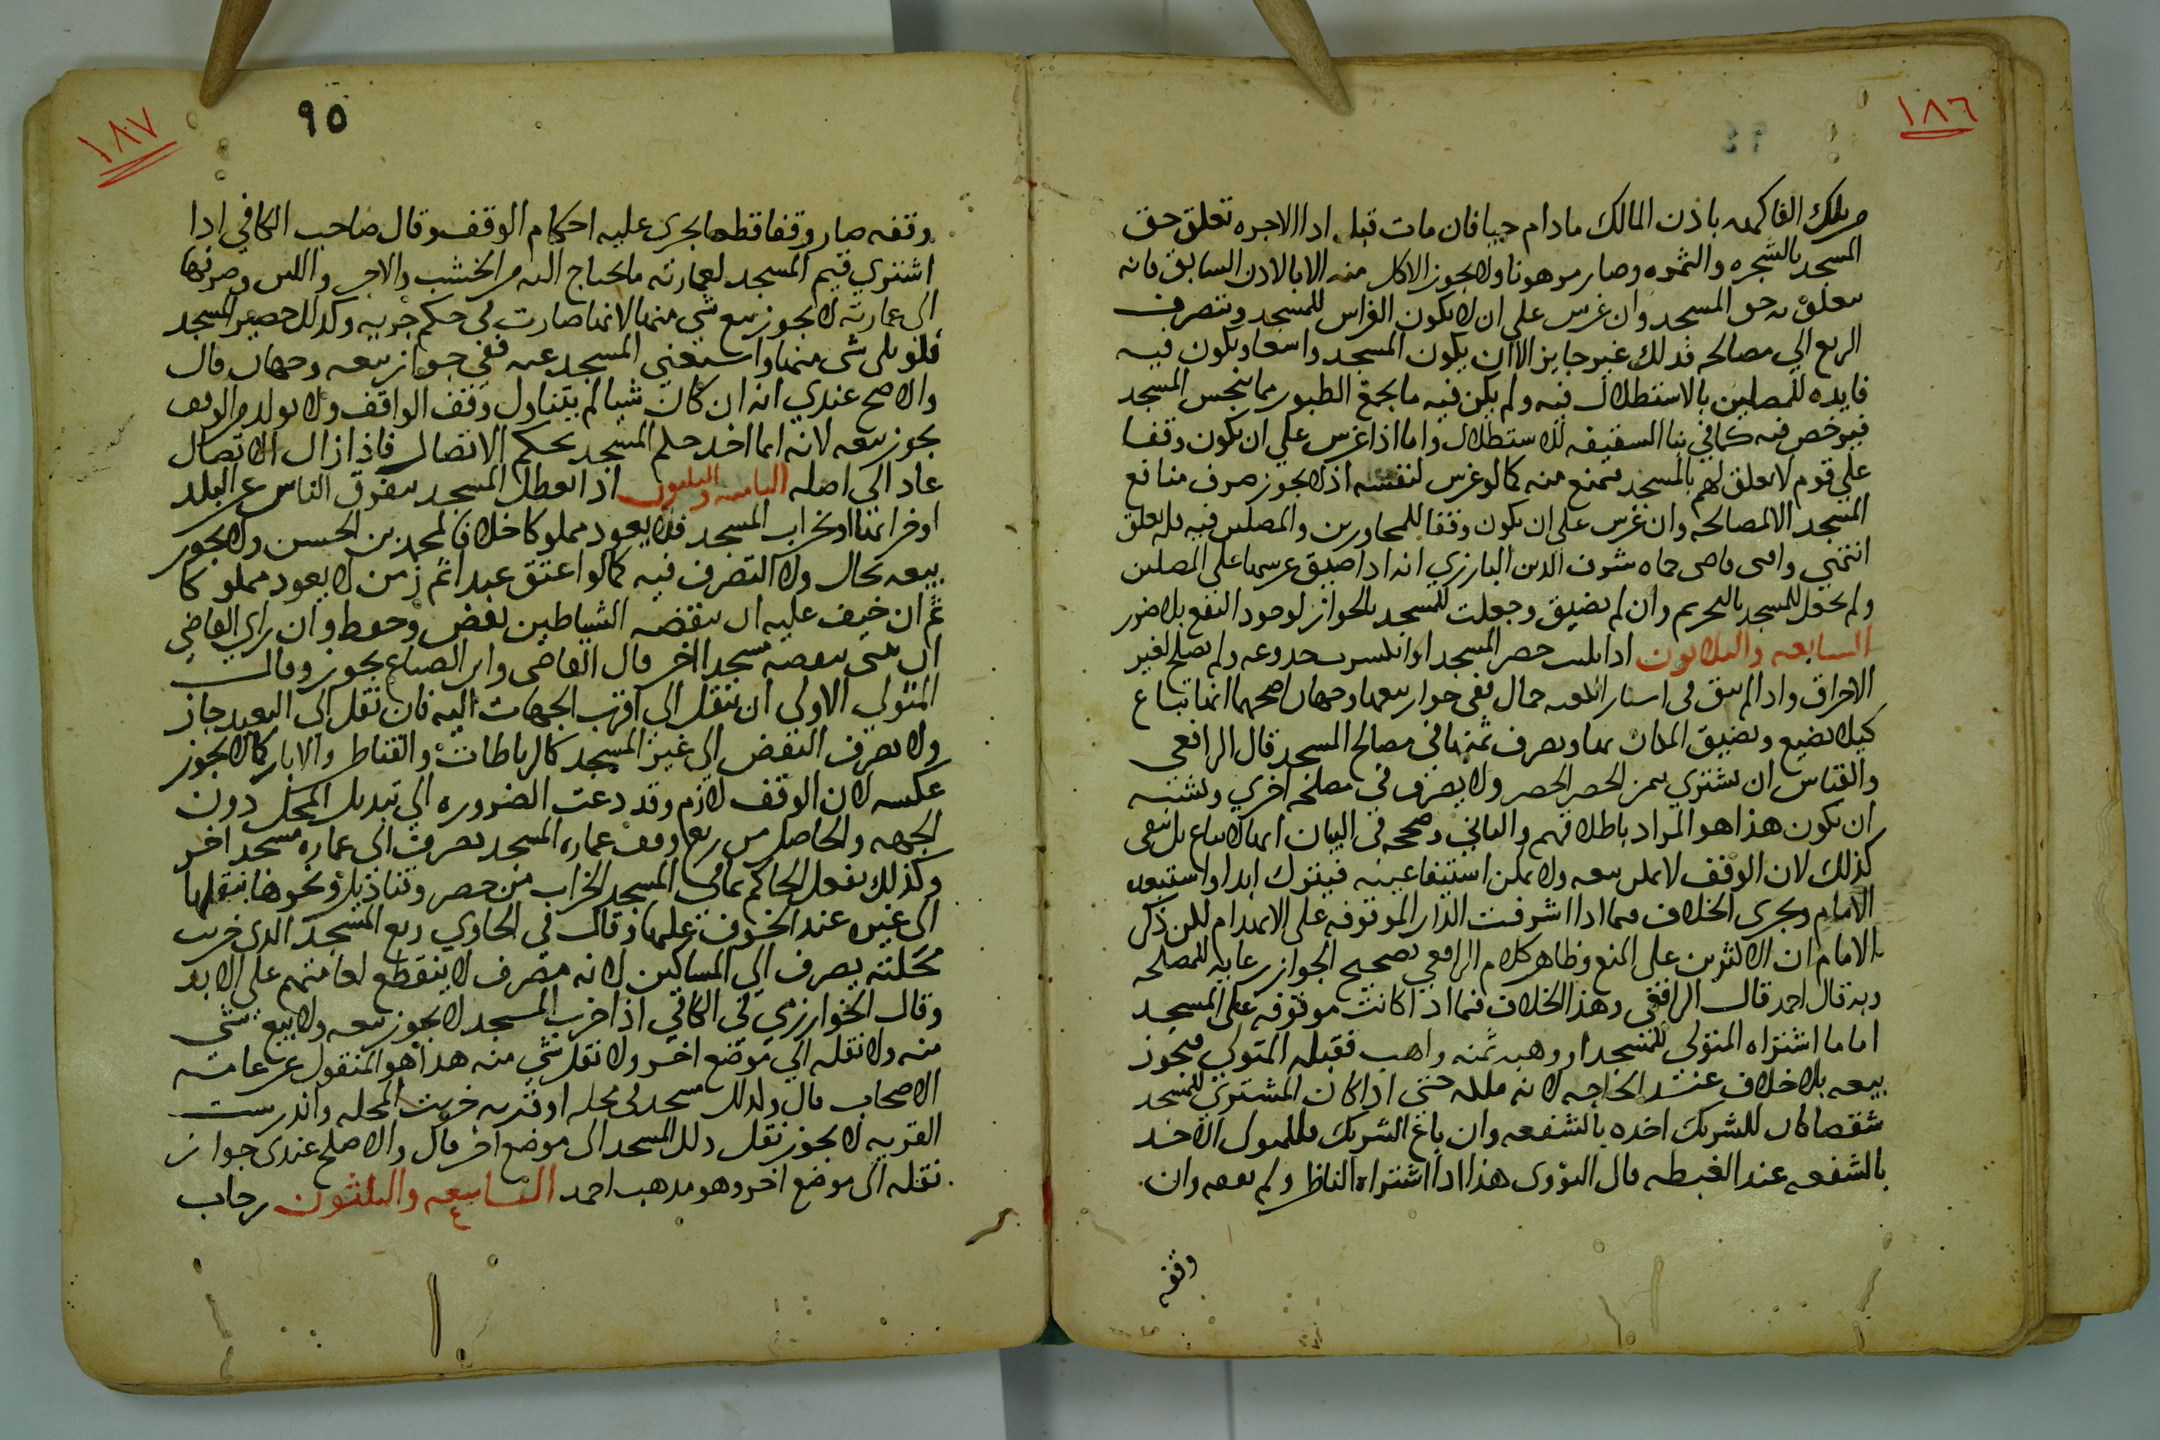 ١٨٦
من تلك الفاكهه باذن المالك مادام حيا فان مات قبل اداالاجره تعلق حق
المسجد بالشجره والثمره وصار مرهونا ولايجوز الاكل منه الا بالاذن السابق فانه
تعلق به حق المسجد وان غرس علي ان لا يكون الغراس للمسجد وتتصرف
الريع الي مصالحه فذلك غير جايز الاان يكون المسجد واسعا ويكون فيه
فايده للمصلين بالاستظلال فيه ولم يكن فيه ما يجمع الطيور مما ينجس المسجد
فيرخص فيه كما في بنا السقيفه للاستظلال واما اذا غرس علي ان يكون وقفا
علي قوم لاتعلق لهم بالمسجد يمنع منه كما لو غرس لنفسه اذ لايجوز صرف منافع
المسجد الالمصالحه وان غرس علي ان يكون وقفا للمجاورين والمصلين فيه فله تعلق
انتهي وافتى قاضى حماه شرف الدين البارزي انه اذا ضيق غرسها على المصلين
ولم تجعل للمسجد بالتحريم وان لم تضيق وجعلت للمسجد بالجواز لوجود النفع بلا ضرر
السابعه والثلاثون اذا بليت حصر المسجد او انكسرت جذوعه ولم تصلح لغير
الاحراق واذا لم يبق في استار الكعبه جمال ففي جواز بيعها وجهان اصحهما انها تباع
كيلا تضيع وتضيق المكان بها ويصرف ثمنها في مصالح المسجد قال الرافعي
والقياس ان يشتري بثمن الحصر الحصر ولا يصرف في مصلحه اخري ويشبه
ان يكون هذا هو المراد باطلاقهم والثاني وصححه في البيان انها لاتباع بل تبقى
كذلك لان الوقف لايملك بيعه ولا يمكن استيفا عينه فيترك ابدا واستبعده
الامام ويجرى الخلاف فيما اذا اشرفت الدار الموقوفه على الانهدام لكن ذكر
الامام ان الاكثرين على المنع وظاهر كلام الرافعي تصحيح الجواز رعايه للمصلحه
وبه قال احمد قال الرافعي وهذا الخلاف فيما اذا كانت موقوفه على المسجد
اما ما اشتراه المتولي للمسجد او وهبه منه واهب فقبله المتولي فيجوز
بيعه بلا خلاف عند الحاجه لانه ملكه حتى اذا كان المشتري للمسجد
شقصا كان للشريك اخذه بالشفعه وان باع الشريك فللمتولى الاخذ
بالشفعه عند الغبطه قال النووى هذا اذا اشتراه الناظر ولم يقفه وان
وقفه
١٨٧
٩٥
وقفه صار وقفا قطعا يجرى عليه احكام الوقف وقال صاحب الكافي اذا
اشتري قيم المسجد لعمارته ما يحتاج اليه من الخشب والاجر واللبن وصرفها
الى عمارته لا يجوز بيع شي منها لانها صارت في حكم جزيه وكذلك حصير المسجد
فلو بلى شى منها واستغني المسجد عنه ففي جواز بيعه وجهان قال
والاصح عندي انه ان كان شيا لم يتناول وقف الواقف ولا تولد من الوقف
يجوز بيعه لانه انما اخذ حكم المسجد بحكم الاتصال فاذا زال الاتصال
عاد الى اصله الثامنه والثلثون اذا تعطل المسجد بتفرق الناس عن البلد
او خرابها او بخراب المسجد فلا يعود مملوكا خلافا لمحمد بن الحسن ولا يجوز
بيعه بحال ولا التصرف فيه كما لو اعتق عبدا ثم زمن لا يعود مملوكا
ثم ان خيف عليه ان ينقضه الشياطين نقض وحفظ وان راى القاضي
ان يبنى بنقضه مسجدا اخر قال القاضى وابن الصباغ يجوز وقال
المتولي الاولى ان ينقل الى اقرب الجهات اليه فان نقل الى البعيد جاز
ولا يصرف النقض الى غير المسجد كالرباطات والقناطر والابار كما لا يجوز
عكسه لان الوقف لازم وقد دعت الضروره الي تبديل المحل دون
الجهه والحاصل من ريع وقف عماره المسجد يصرف الى عماره مسجد اخر
وكذلك يفعل الحاكم بما في المسجد الخراب من حصر وقناديل ونحوها ينقلها
الى غيره عند الخوف عليها وقال في الحاوي ريع المسجد الذى خربت
محلته يصرف الي المساكين لانه مصرف لا ينقطع لعامتهم على الابد
وقال الخوارزمي في الكافي اذا خرب المسجد لا يجوز بيعه ولا بيع شى
منه ولا نقله الي موضع اخر ولا نقل شي منه هذا هو المنقول عن عامه
الاصحاب قال وكذلك مسجد في محله او قريه خربت المحله واندرست
القريه لا يجوز نقل ذلك المسجد الى موضع اخر قال والاصلح عندى جواز
نقله الى موضع اخر وهو مذهب احمد التاسعه والثلثون رحاب